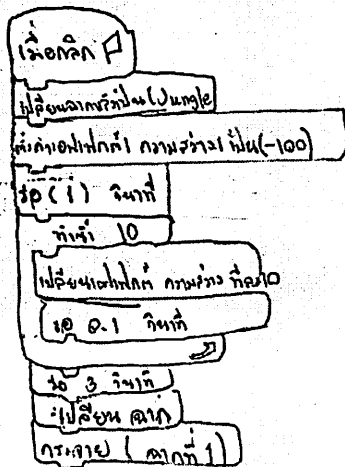 เมื่อคลิก
เปลี่ยนฉากหลังเป็น (Jungle
ตั้งค่าเอฟเฟกต์ ความสว่าง เป็น (-100)
รอ (1) วินาที
ทำซ้ำ 10
เปลี่ยนเอฟเฟกต์ ความสว่าง ทีละ 10
รอ 0.1 วินาที
รอ 3 วินาที
เปลี่ยน ฉาก
กระจาย ( ฉากที่ 1 )